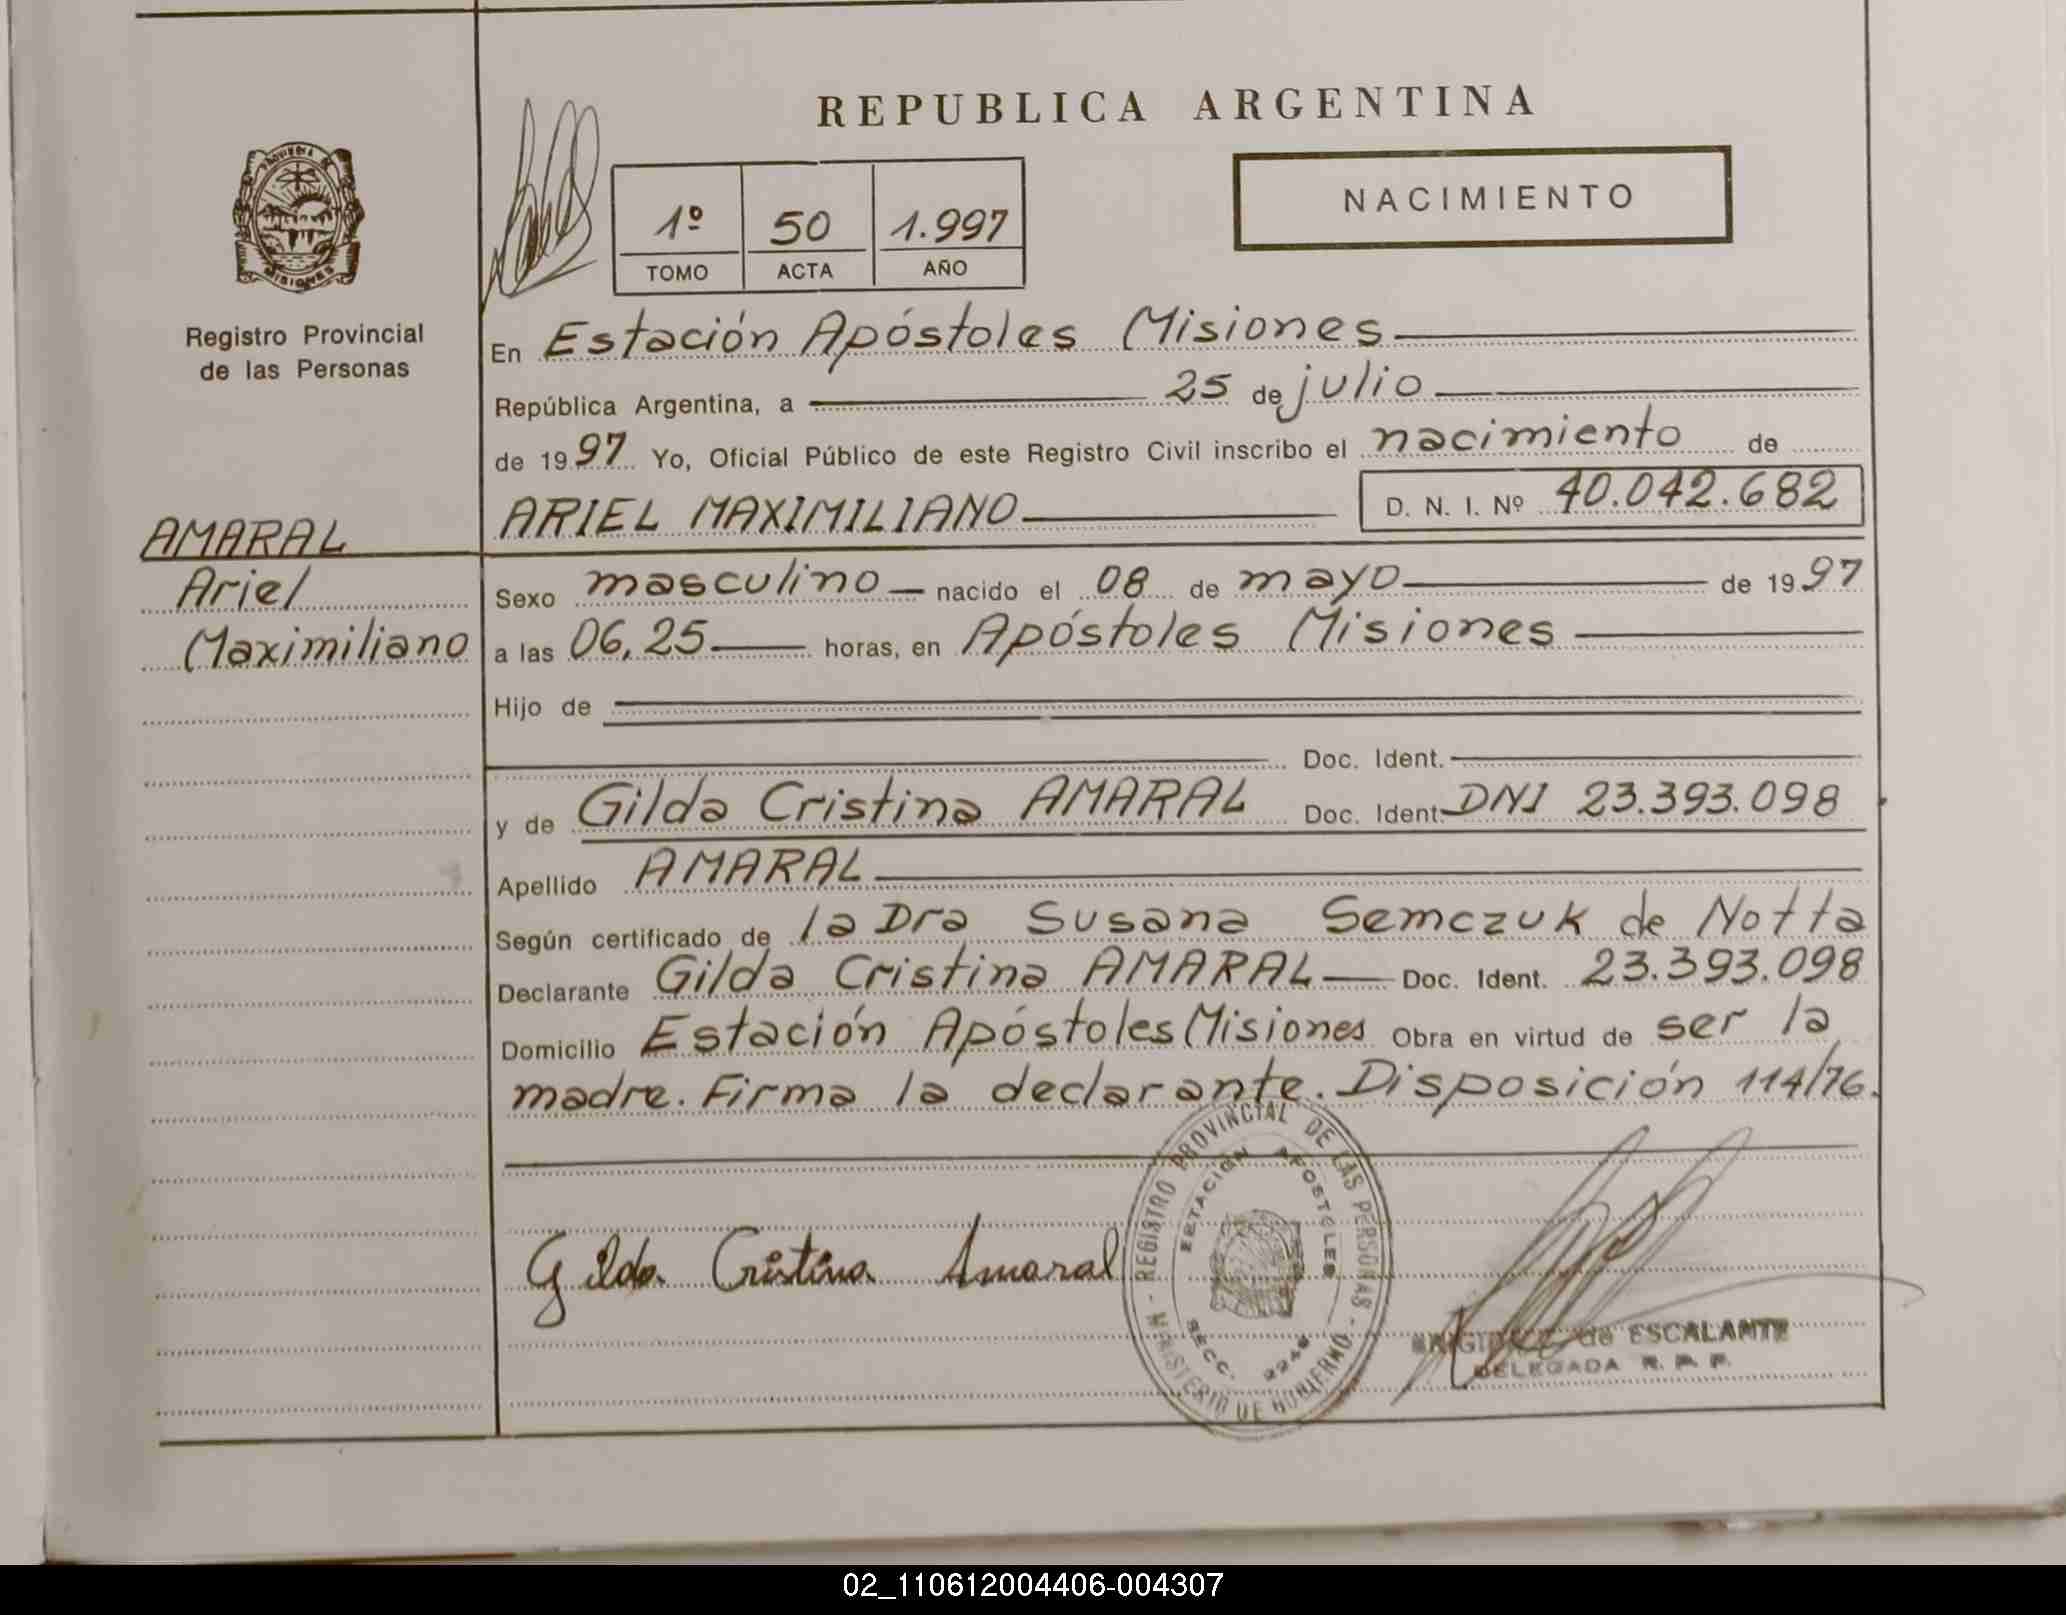 REPUBLICA ARGENTINA
NACIMIENTO
PROVINCIA DE
MISIONES
Registro Provincial
de las Personas
1º 50 1.997
TOMO ACTA AÑO
En Estación Apóstoles Misiones
República Argentina, a 25 de julio
de 1997 Yo, Oficial Público de este Registro Civil inscribo el nacimiento de
ARIEL MAXIMILIANO D. N. I. Nº 40.042.682
AMARAL
Ariel
Maximiliano
Sexo masculino nacido el 08 de mayo de 1997
a las 06,25 horas, en Apóstoles Misiones
Hijo de
Doc. Ident.
y de Gilda Cristina AMARAL Doc. Ident. DNI 23.393.098
Apellido AMARAL
Según certificado de la Dra Susana Semczuk de Notta
Declarante Gilda Cristina AMARAL Doc. Ident. 23.393.098
Domicilio Estación Apóstoles Misiones Obra en virtud de ser la
madre. Firma la declarante. Disposición 114/76.
Gilda Cristina Amaral
- REGISTRO PROVINCIAL DE LAS PERSONAS -
MINISTERIO DE GOBIERNO
ESTACION APOSTOLES
SECC.
de ESCALANTE
DELEGADA R. P. P.
02_110612004406-004307